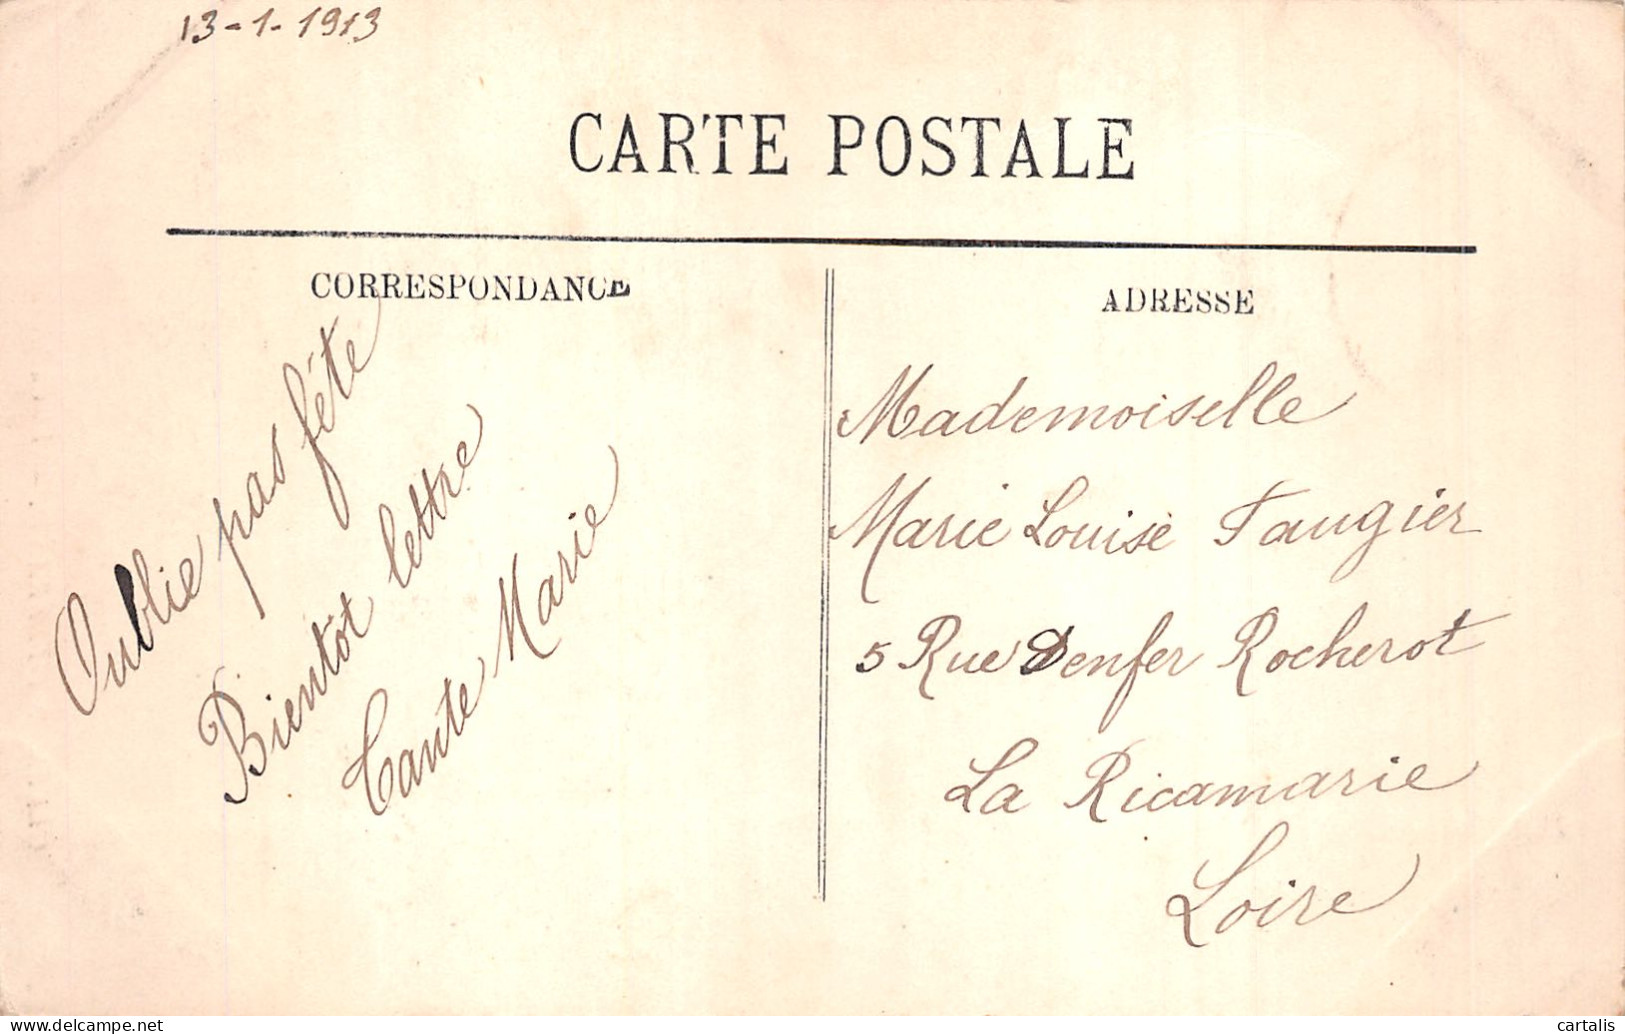 13-1-1913
CARTE POSTALE
CORRESPONDANCE
Oublie pas fête
Bientôt lettre
Tante Marie
ADRESSE
Mademoiselle
Marie Louise Faugier
5 Rue Denfer Rocherot
La Ricamarie
Loire
delcampe.net
cartalis